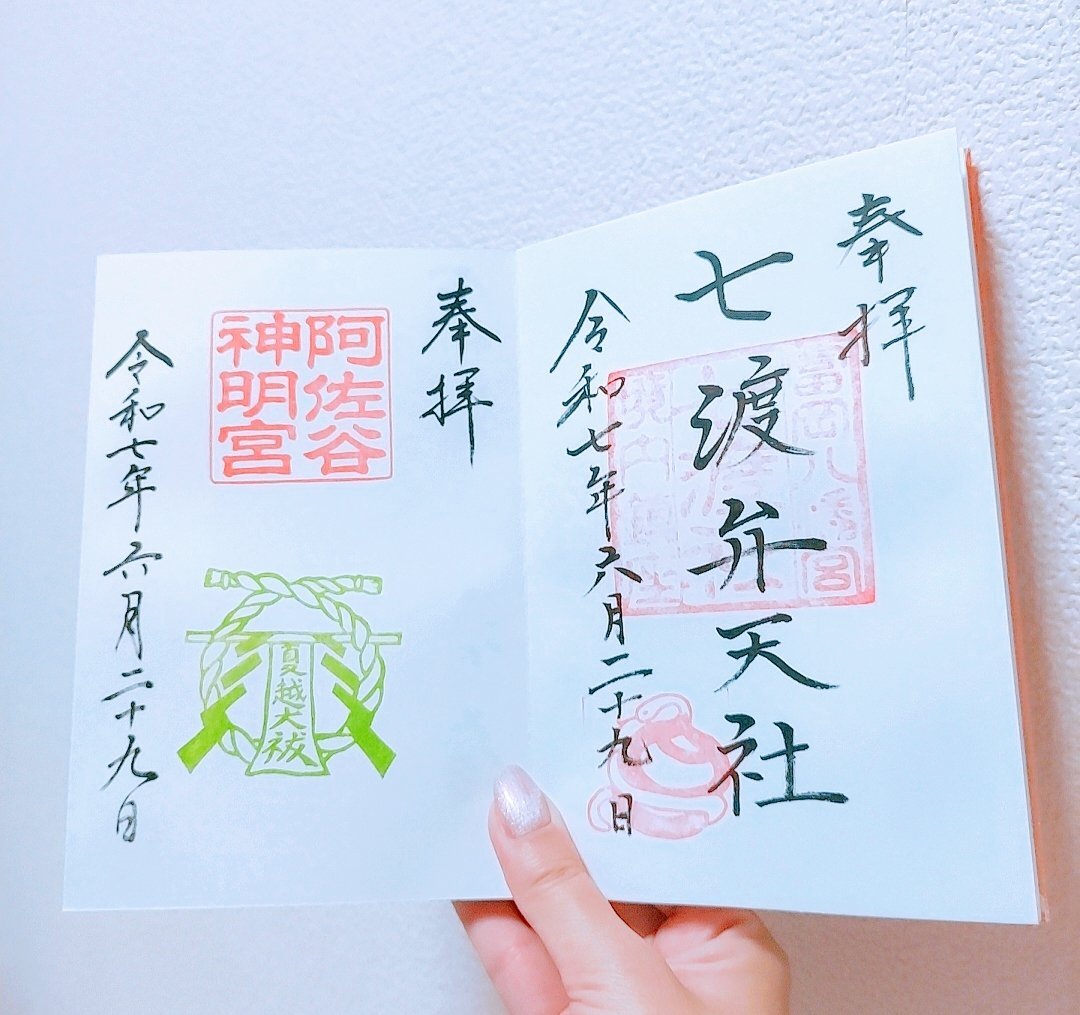 奉拝
富岡八幡宮
七渡弁天社
令和七年六月二十九日
奉拝
阿佐谷
神明宮
夏越大祓
令和七年六月二十九日